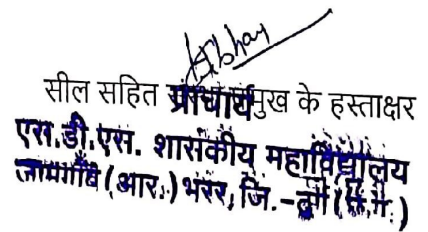 सील सहित संस्था प्रमुख के हस्ताक्षर
प्राचार्य
एस.डी.एस. शासकीय महाविद्यालय
जामगाँव (आर.) भरर, जि.-दुर्ग (छ.ग.)